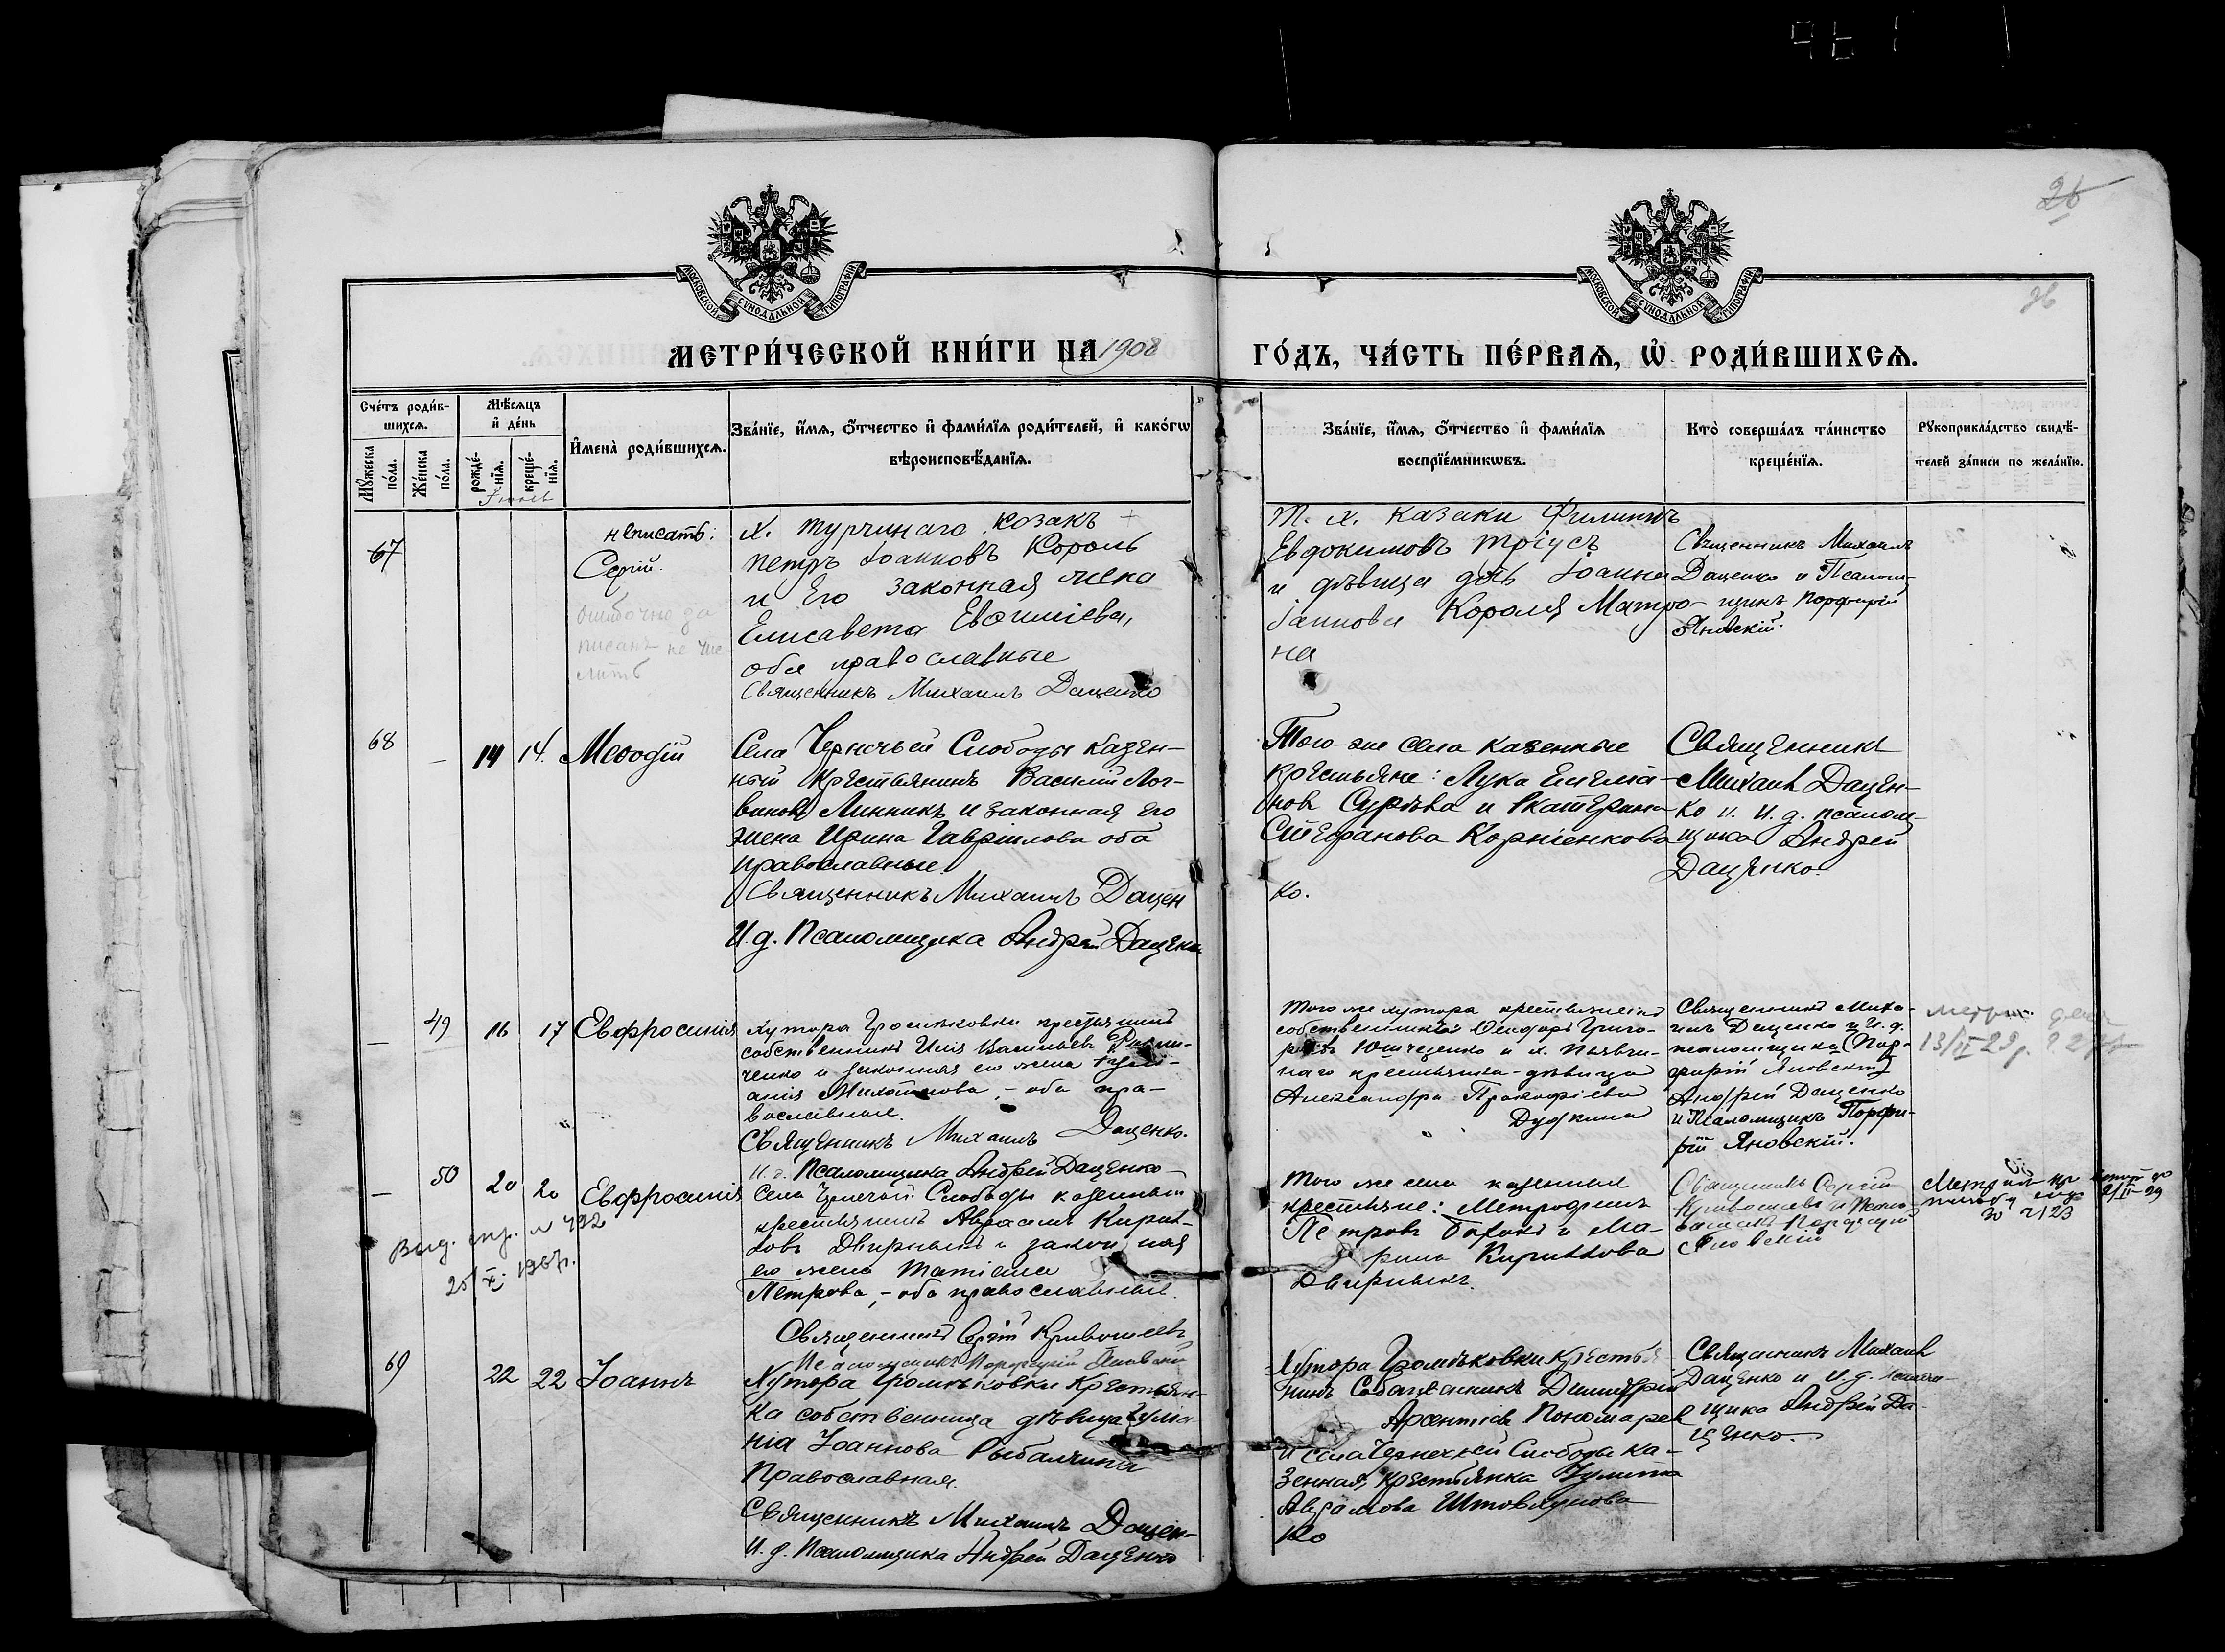 26
26
МОСКОВСКОЙ СѴНОДАЛЬНОЙ ТИПОГРАФІИ
МОСКОВСКОЙ СѴНОДАЛЬНОЙ ТИПОГРАФІИ
МЕТРИ́ЧЕСКОЙ КНИ́ГИ НА 1908
ГО́ДЪ, ЧА́СТЬ ПЕ́РВАѦ, Ѡ҆ РОДИ́ВШИХСѦ.
Сче́тъ роди́в-
шихсѧ.
Мѹ́жеска по́ла.
Же́нска по́ла.
Мѣ́сѧцъ
и҆ де́нь
рожде́-
нїѧ.
креще́-
нїѧ.
Іюль
И҆мена̀ роди́вшихсѧ.
Зва́нїе, и҆́мѧ, ѻ҆́тчество и҆ фами́лїѧ роди́телей, и҆ како́гѡ
вѣроисповѣ́данїѧ.
Зва́нїе, и҆́мѧ, ѻ҆́тчество и҆ фами́лїѧ
воспрїе́мникѡвъ.
Кто̀ соверша́лъ та́инство
креще́нїѧ.
Рѹкоприкла́дство свидѣ́-
телей за́писи по жела́нїю.
67
Сергій.
ошибочно за
писанъ не чис
лить
х. Турчинаго козакъ
Петръ Іоанновъ Король
и его законная жена
Елисавета Евѳиміева,
оба православные
Священникъ Михаилъ Даценко
Т. х. казаки Филиппъ
Евдокимовъ Тріусъ
и дѣвица дочь Іоанна
Іаннова Короля Матро-
на
Священникъ Михаилъ
Даценко и Псалом-
щикъ Порфирій
Яновскій.
68 — 14 14. Меѳодій
Села Чернечьей Слободы казен-
ный крестьянинъ Василий Лог-
виновъ Линникъ и законная его
жена Ирина Гаврилова оба
православные.
Священникъ Михаилъ Дацен
И. д. Псаломщика Андрей Даценко
Того же села казенные
крестьяне: Лука Емелья-
новъ и Екатерина
Стефанова Корніенкова
ко.
Священникъ
Михаилъ Дацен-
ко и И. д. псалом-
щика Андрей
Даценко.
— 49 16 17 Евфросинія
хутора Громыковки крестьянинъ
собственникъ Илія Васильевъ
ченко и законная его жена
анія, — оба пра-
вославные.
Священникъ Михаилъ Даценко.
И. д. Псаломщика Андрей Даценко
Того же хутора крестьянинъ
собственникъ Ѳеодоръ Григо-
рьевъ Ющченко и х.
наго крестьянка-дѣвица
Александра Прокофіева
Дудкина
Священникъ Миха-
илъ Даценко и И. д.
псаломщика (Пор-
фирій Яновскій)
Андрей Даценко
и Псаломщикъ Порфи-
рій Яновскій.
13/II 29 р.
— 50 20 20 Евфросинія
Выд. спр. № 492
25/X. 1967г.
Села Чернечьей Слободы казенный
крестьянинъ Авраамъ Кирил-
ловъ Двирныкъ и законная
его жена Татіана
Петрова, — оба православные.
Священникъ Сергій Кривошеевъ
Псаломщикъ Порфирій Яновскій
Того же села казенные
крестьяне: Митрофанъ
Петровъ и Ма-
рина Кириллова
Двирныкъ.
Священникъ Сергій
Кривошеевъ и Псалом-
щикъ Порфирій
Яновскій
69 22 22 Іоаннъ
Хутора Громыковки Крестьян-
ка собственница дѣвица Іуліа
нія Іоаннова Рыбалкина
Православная.
Священникъ Михаилъ Дацен-
И. д. Псаломщика Андрей Даценко
Хутора Громыковки Крестья
нинъ Собственникъ Димитрій
Арсентіевъ Пономарев
и села Чернечьей Слободы Ка-
зенная Крестьянка Іулитта
Авраамова Штовхунова
Священникъ Михаилъ
Даценко и И. д. псалом-
щика Андрей Да-
ценко.